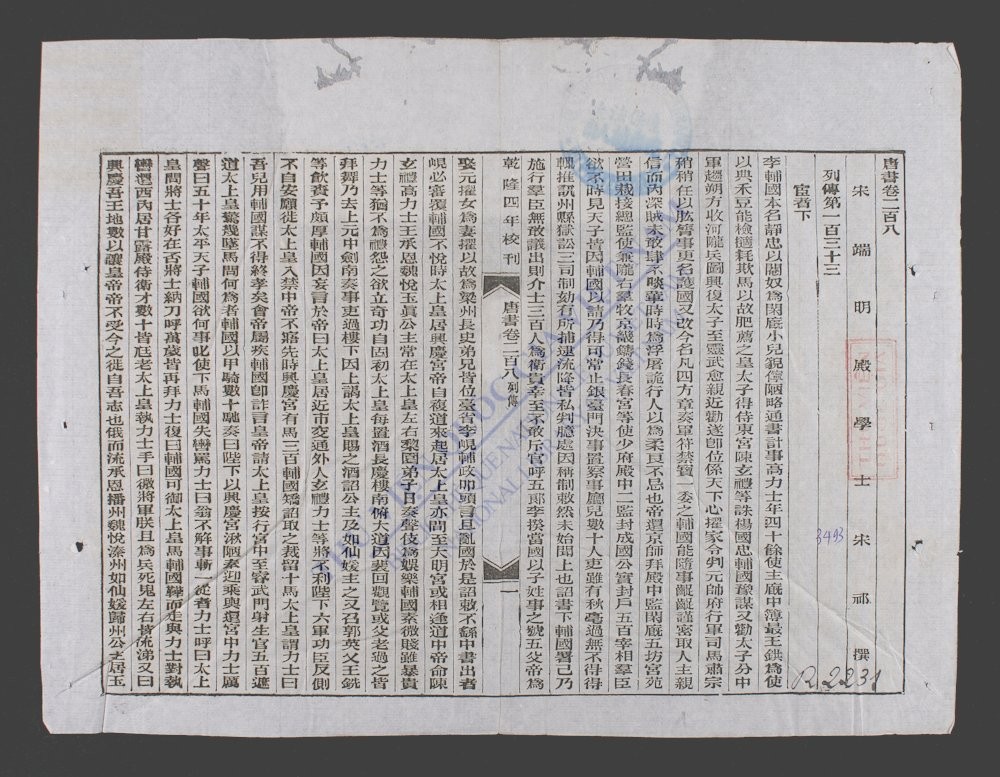 唐書卷二百八
宋端明殿學士宋祁撰
列傳第一百三十三
宦者下
李輔國本名靜忠以閹奴爲閑廄小兒貌儜陋略通書計事高力士年四十餘使主廄中簿最王鉷爲使
以典禾豆能檢擿耗欺馬以故肥薦之皇太子得侍東宮陳玄禮等誅楊國忠輔國豫謀又勸太子分中
軍趨朔方收河隴兵圖興復太子至靈武愈親近勸遂卽位係天下心擢家令判元帥府行軍司馬肅宗
稍稍任以肱膂事更名護國又改今名凡四方章奏軍符禁寶一委之輔國能隨事齪齪謹密取人主親
信而內深賊未敢肆不啖葷時時爲浮屠詭行人以爲柔良不忌也帝還京師拜殿中監閑廄五坊宮苑
營田栽接總監使兼隴右羣牧京畿鑄錢長春宮等使少府殿中二監封成國公實封戶五百宰相羣臣
欲不時見天子皆因輔國以請乃得可常止銀臺門決事置察事廳兒數十人吏雖有秋毫過無不得得
輒推訊州縣獄訟三司制劾有所捕逮流降皆私判臆處因稱制敕然未始聞上也詔書下輔國署已乃
施行羣臣無敢議出則介士三百人爲衛貴幸至不敢斥官呼五郎李揆當國以子姓事之號五父帝爲
乾隆四年校刊 唐書卷二百八 列傳 一
娶元擢女爲妻擢以故爲梁州長史弟兄皆位臺省李峴輔政叩頭言且亂國於是詔敕不繇中書出者
峴必審覆輔國不悅時太上皇居興慶宮帝自複道來起居太上皇亦間至大明宮或相逢道中帝命陳
玄禮高力士王承恩魏悅玉眞公主常在太上皇左右梨園弟子日奏聲伎爲娛樂輔國素微賤雖暴貴
力士等猶不爲禮怨之欲立奇功自固初太上皇每置酒長慶樓南俯大道因裴回觀覽或父老過之皆
拜舞乃去上元中劍南奏事吏過樓下因上謁太上皇賜之酒詔公主及如仙媛主之又召郭英乂王銑
等飮賚予頗厚輔國因妄言於帝曰太上皇居近市交通外人玄禮力士等將不利陛下六軍功臣反側
不自安願徙太上皇入禁中帝不寤先時興慶宮有馬三百輔國矯詔取之裁留十馬太上皇謂力士曰
吾兒用輔國謀不得終孝矣會帝屬疾輔國卽詐言皇帝請太上皇按行宮中至睿武門射生官五百遮
道太上皇驚幾墜馬問何爲者輔國以甲騎數十馳奏曰陛下以興慶宮湫陋奉迎乘輿還宮中力士厲
聲曰五十年太平天子輔國欲何事叱使下馬輔國失轡罵力士曰翁不解事斬一從者力士呼曰太上
皇問將士各好在否將士納刀呼萬歲皆再拜力士復曰輔國可御太上皇馬輔國鞾而走與力士對執
轡還西內居甘露殿侍衛才數十皆尪老太上皇執力士手曰微將軍朕且爲兵死鬼左右皆流涕又曰
興慶吾王地數以讓皇帝帝不受今之徙自吾志也俄而流承恩播州魏悅溱州如仙媛歸州公主居玉
3493
R.2231